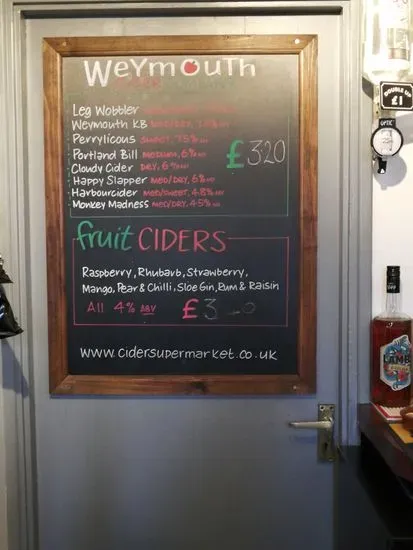 Weymouth
Leg Wobbler
Weymouth KB MED/DRY,
Perrylicous SWEET, 7.5% ABV
Portland Bill MEDIUM, 6% ABV
£320
Cloudy Cider DRY, 6% ABV
Happy Slapper MED/DRY, 6% ABV
Harbourcider MED/SWEET, 4.8% ABV
Monkey Madness MED/DRY, 4.5% ABV
fruit CIDERS
Raspberry, Rhubarb, Strawberry,
Mango, Pear & Chilli, Sloe Gin, Rum & Raisin
All 4% ABV £3
www.cidersupermarket.co.uk
DOUBLE UP
£1
OPTIC
LAMB